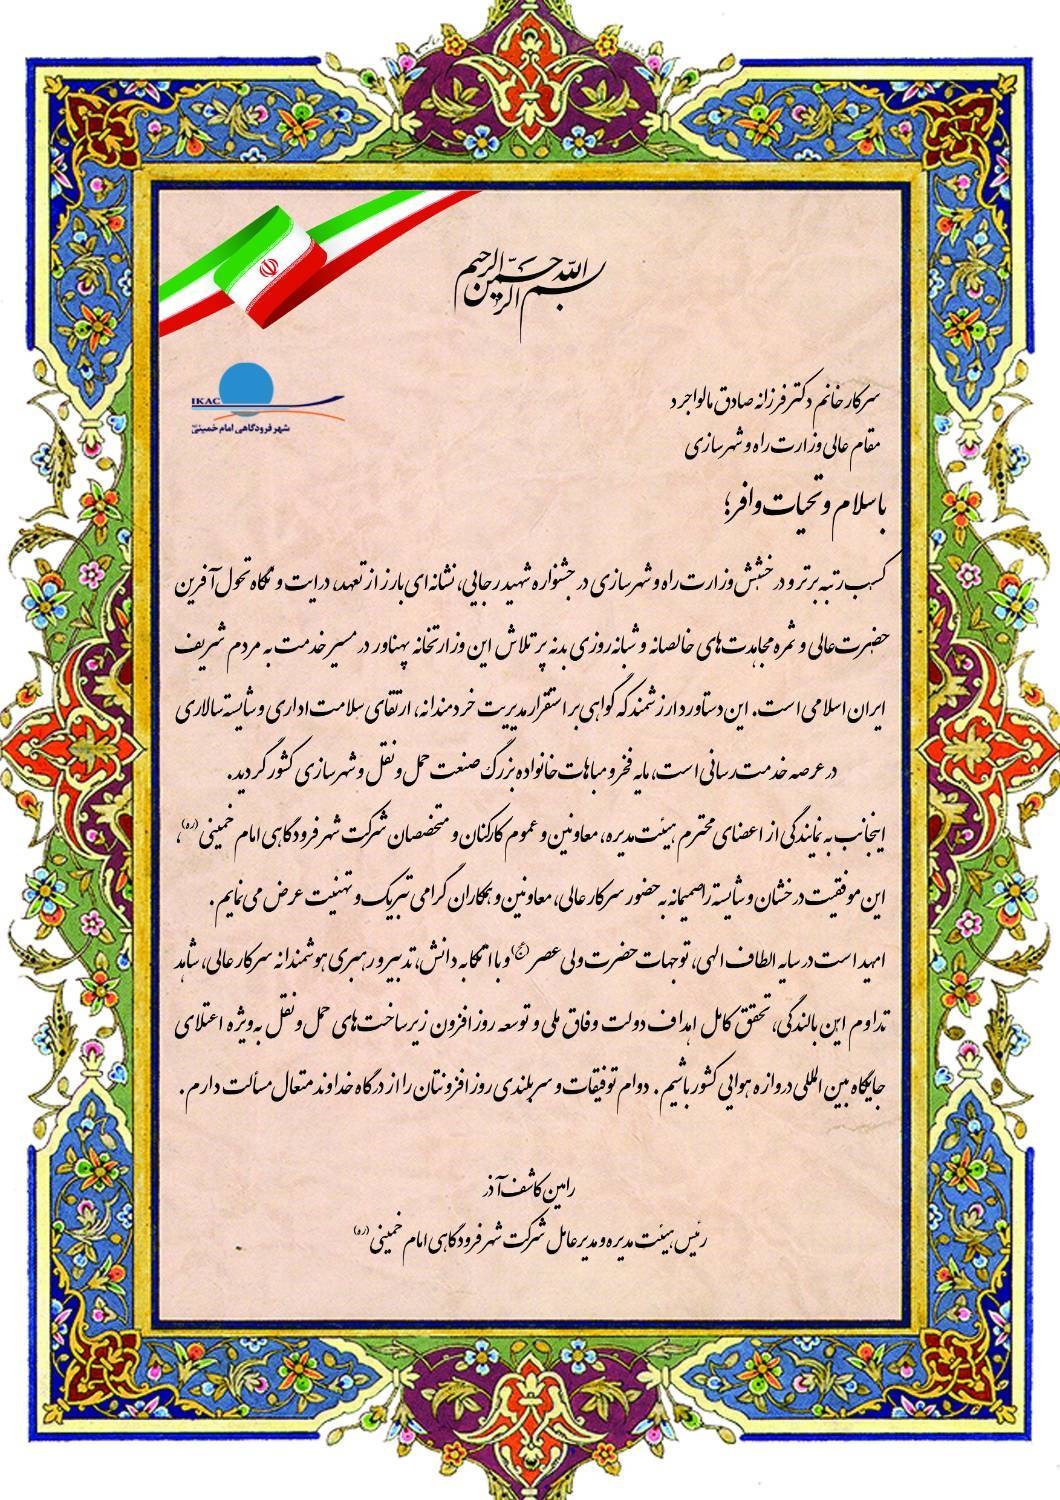 بسم الله الرحمن الرحیم
IKAC
شهر فرودگاهی امام خمینی (ره)
سرکار خانم دکتر فرزانه صادق مالواجرد
مقام عالی وزارت راه و شهرسازی
با سلام و تحیات وافر؛
کسب رتبه برتر و درخشش وزارت راه و شهرسازی در جشنواره شهید رجایی، نشانه‌ای بارز از تعهد، درایت و نگاه تحول آفرین
حضرت‌عالی و ثمره مجاهدت‌های خالصانه و شبانه‌روزی بدنه پرتلاش این وزارتخانه پهناور در مسیر خدمت به مردم شریف
ایران اسلامی است. این دستاورد ارزشمند که گواهی بر استقرار مدیریت خردمندانه، ارتقای سلامت اداری و شایسته سالاری
در عرصه خدمت‌رسانی است، مایه فخر و مباهات خانواده بزرگ صنعت حمل و نقل و شهرسازی کشور گردید.
اینجانب به نمایندگی از اعضای محترم هیئت مدیره، معاونین و عموم کارکنان و متخصصان شرکت شهر فرودگاهی امام خمینی (ره)،
این موفقیت درخشان و شایسته را صمیمانه به حضور سرکار عالی، معاونین و همکاران گرامی تبریک و تهنیت عرض می‌نمایم.
امید است در سایه الطاف الهی، توجهات حضرت ولی عصر (عج) و با اتکا به دانش، تدبیر و رهبری هوشمندانه سرکار عالی، شاهد
تداوم این بالندگی، تحقق کامل اهداف دولت وفاق ملی و توسعه روزافزون زیرساخت‌های حمل و نقل به‌ویژه اعتلای
جایگاه بین المللی دروازه هوایی کشور باشیم. دوام توفیقات و سربلندی روزافزونتان را از درگاه خداوند متعال مسألت دارم.
رامین کاشف آذر
رئیس هیئت مدیره و مدیرعامل شرکت شهر فرودگاهی امام خمینی (ره)